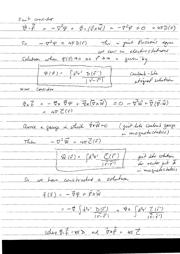 First consider
∇·F = -∇²φ + ∇·(∇×W) = -∇²φ + 0 = 4πD(r)
So -∇²φ = 4πD(r) This is just Poisson's eqn
we saw in electrostatics
Solution when φ(r)→0 as r→∞ is given by
φ(r) = ∫d³r' D(r')/|r-r'| Coulomb-like
integral solution
Now consider
Choose a gauge in which ∇·W=0 (just like Coulomb gauge
in magnetostatics)
Then -∇²W = ∇×F = 4πC(r)
W(r) = ∫d³r' C(r')/|r-r'| just like solution
for vector pot A
in magnetostatics
So we have constructed a solution
F(r) = -∇φ + ∇×W
= -∇∫d³r' D(r')/|r-r'| + ∇×∫d³r' C(r')/|r-r'|
where ∇·F = 4πD and ∇×F = 4πC